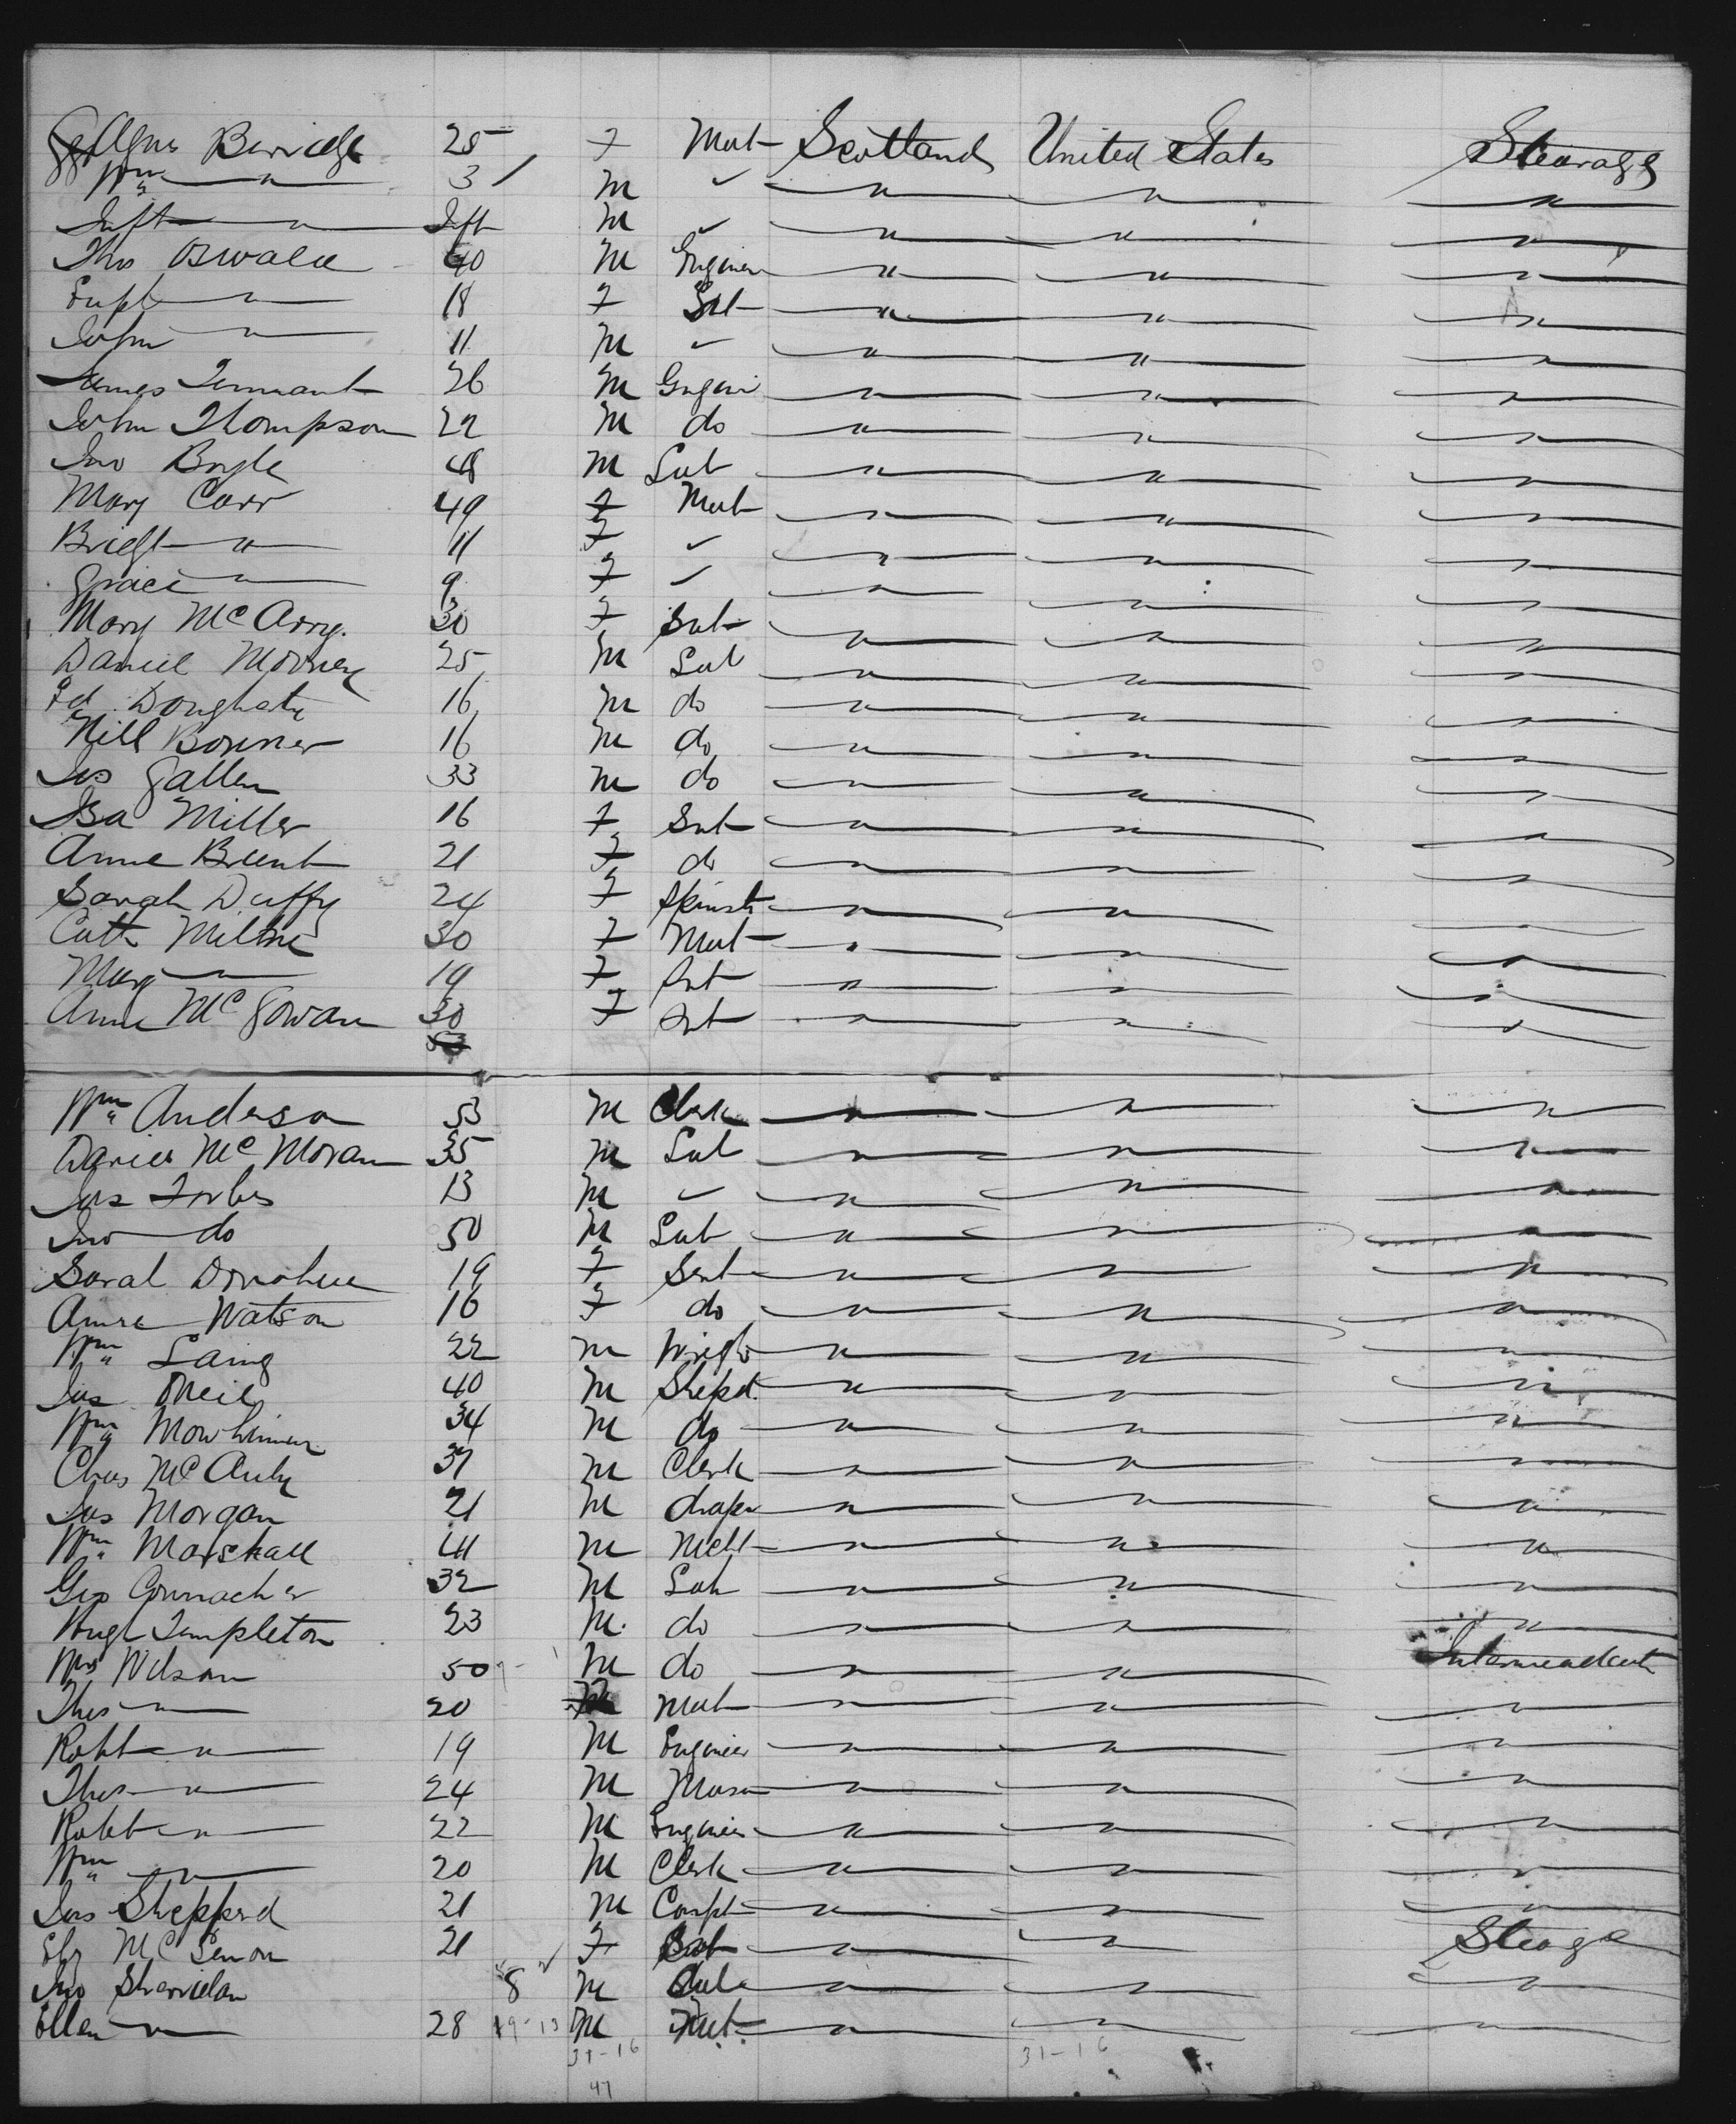 Agnes Berridge 25 F Mat Scotland United States Steerage
Wm " 3 M ✓ " " "
Inft " Inft M ✓ " " "
Thos Oswald 40 M Engineer " " "
Euph " 18 F " " "
John " 11 M ✓ " " "
James Tennant 26 M " " "
John Thompson 22 M do " " "
Jno Boyle 48 M Lab " " "
Mary Carr 49 F Mat " " "
Bridgt " 11 F ✓ " " "
Grace " 9 F ✓ " " "
Mary McArry. 30 F Svt " " "
Daniel Mooney 25 M Lab " " "
Ed Dougharty 16 M do " " "
Neill Bonner 16 M do " " "
Jas Gallen 33 M do " " "
Isa Miller 16 F Svt " " "
Anne Brent 21 F do " " "
Sarah Duffy 24 F Spinstr " " "
Cath Milne 30 F Mat " " "
Mary " 19 F Svt " " "
Anne McGowan 30 F Svt " " "
Wm Anderson 53 M Clerk " " "
Daniel McMoran 35 M Lab " " "
Jas Forbes 13 M ✓ " " "
Jno do 50 M Lab " " "
Sarah Donohue 19 F Servt " " "
Annie Watson 16 F do " " "
Wm Laing 22 M Wright " " "
Jas Oneil 40 M Shepd. " " "
Wm 34 M do " " "
Chas McAuly 37 M Clerk " " "
Jas Morgan 21 M draper " " "
Wm Marshall 41 M " " "
Geo 32 M Lab " " "
Hugh Templeton 23 M. do " " "
Wilson 50 M do " " Intermediate
Thos " 20 Mat " " "
Robt " 19 M Engineer " " "
Thos " 24 M Mason " " "
Robt " 22 M Engineer " " "
Wm " 20 M Clerk " " "
Jas Shepperd 21 M " " "
Elz McLennon 21 F " " Steerage
Jno Sherridan 8 M " " "
Ellen " 28 19-13 M " " "
31-16 31-16
47